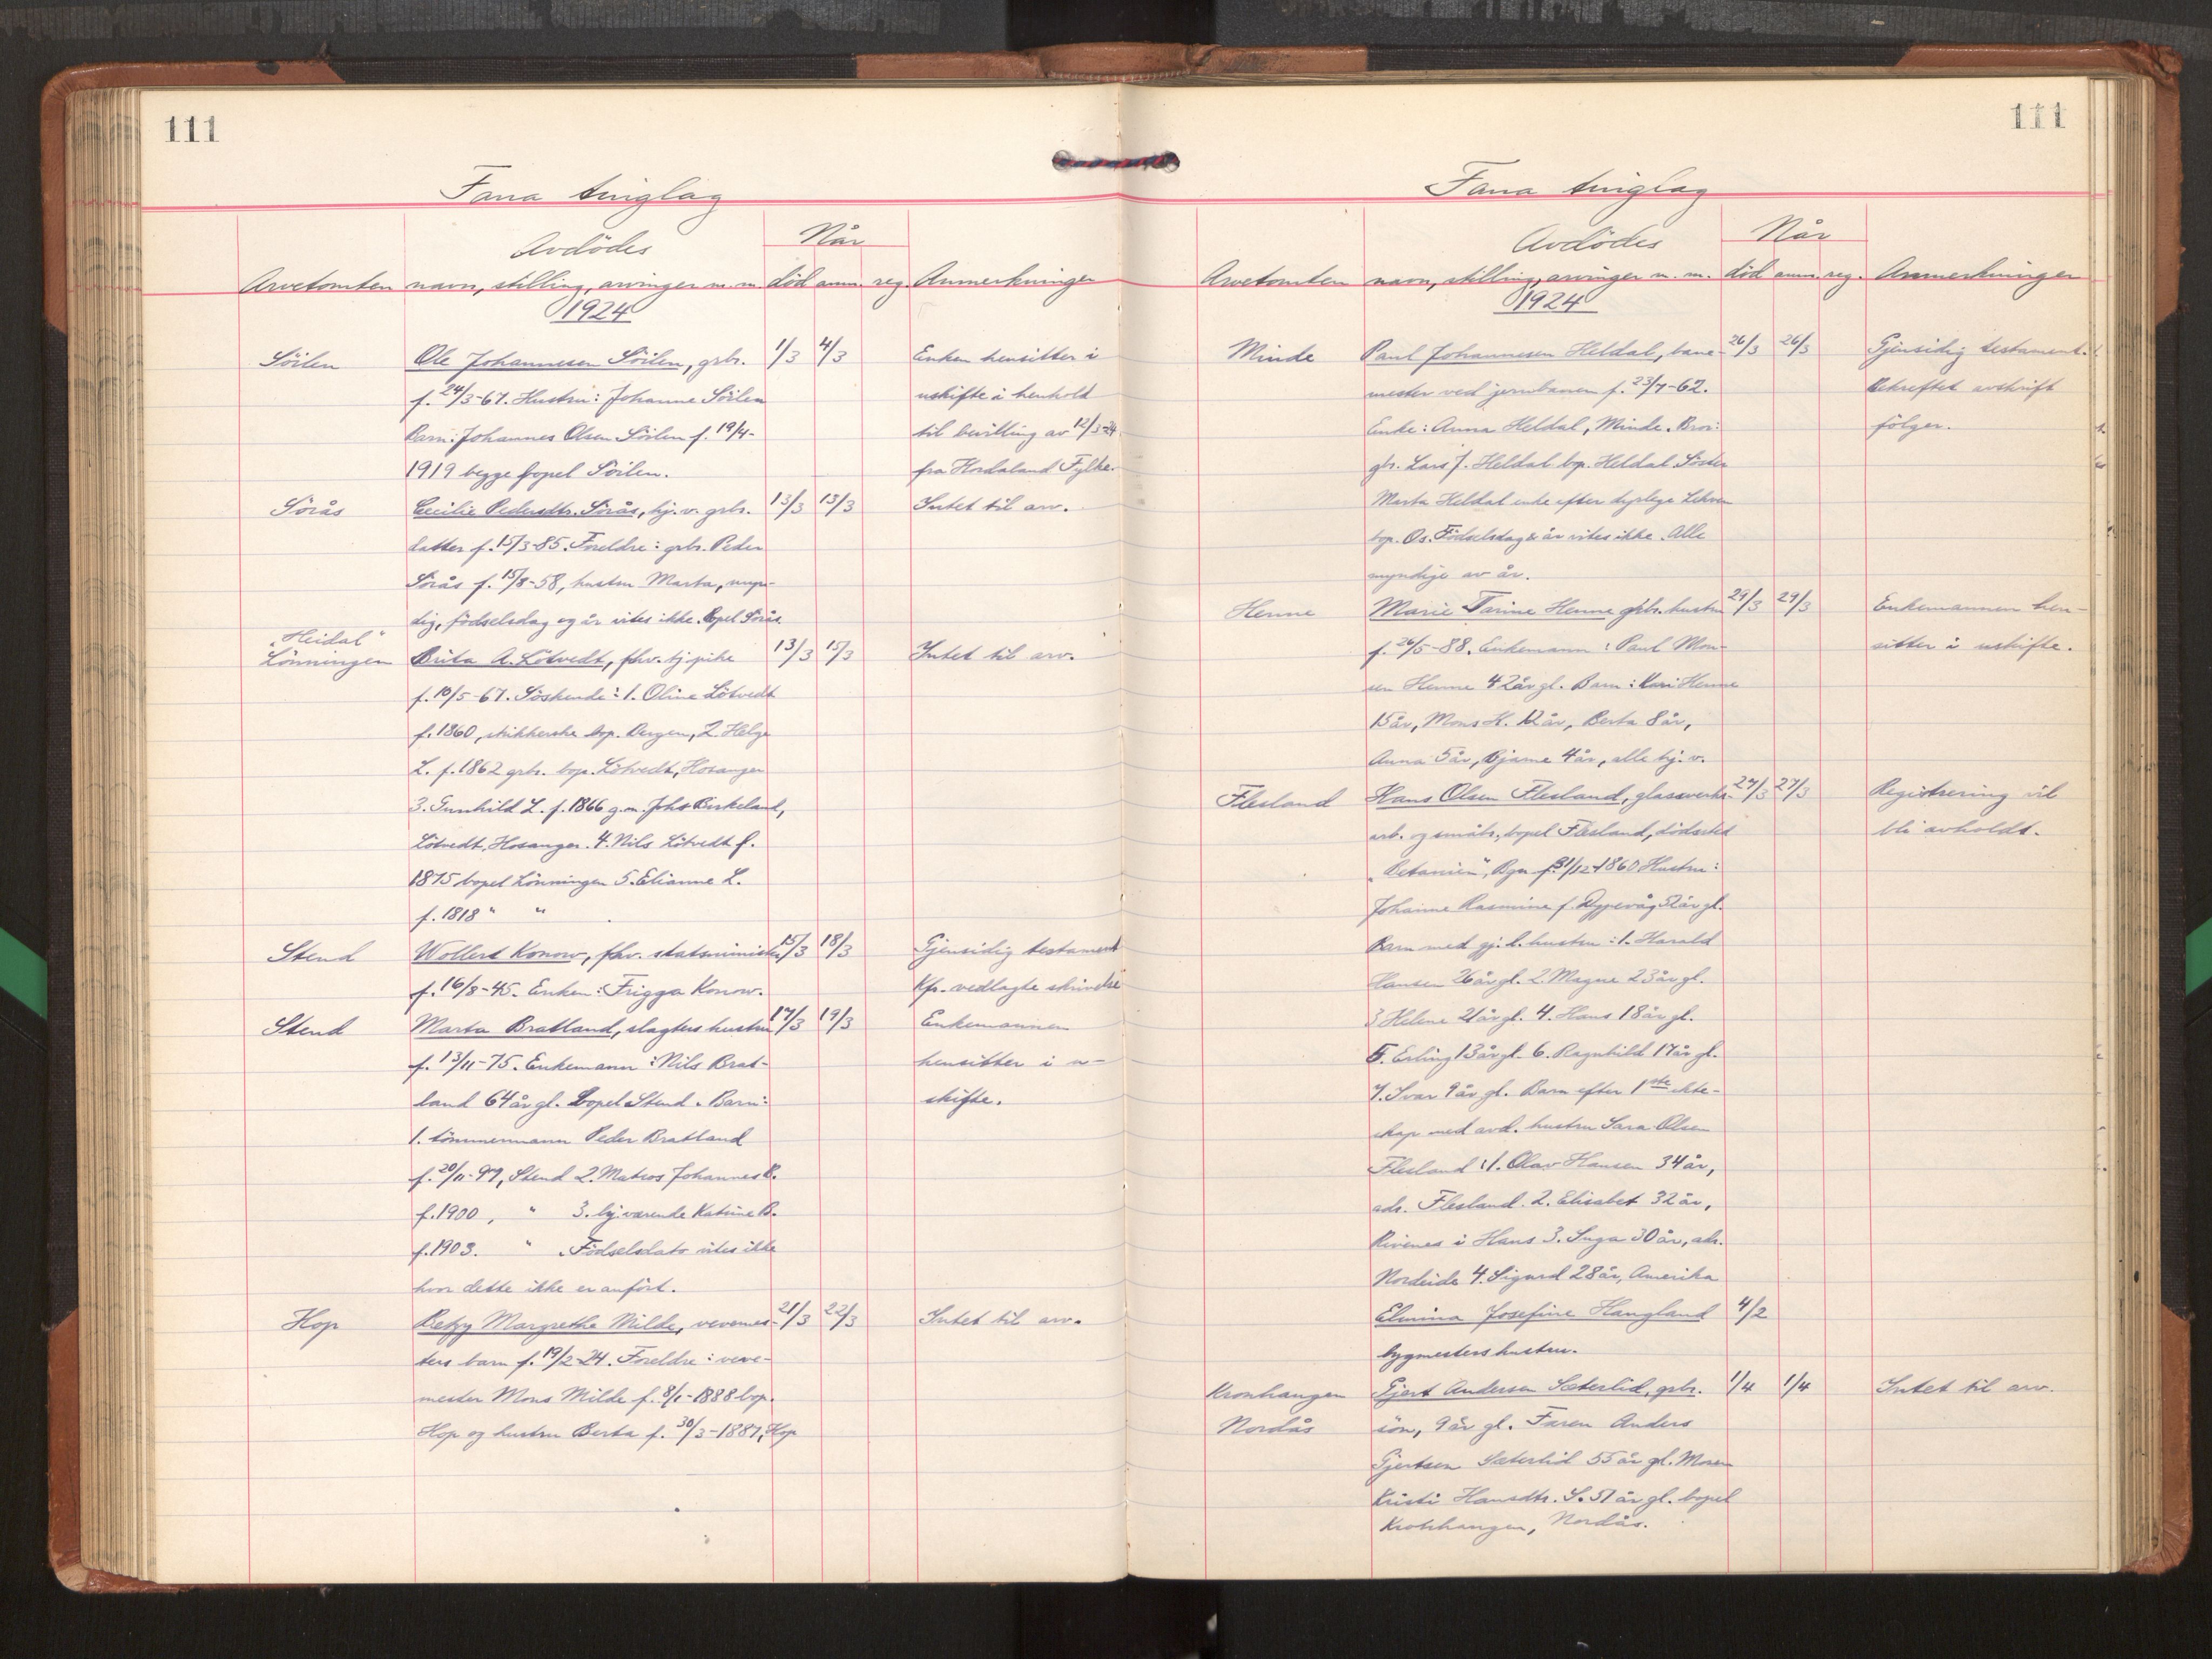 111
Fana tinglag
Avdödes
Når
Arvetomten navn, stilling, arvinger m. m. död anm. reg. Anmerkninger
1924
Söilen Ole Johannesen Söilen, grbr. 1/3 4/3 Enken hensitter i
f. 24/3-67. Hustru: Johanne Söilen uskifte i henhold
Barn: Johannes Olsen Söilen f. 19/4- til bevilling av 12/3-24
1919 begge bopel Söilen. fra Hordaland Fylke.
Sörås Cecilie Pedersdtr. Sörås, hj. v. grbr. 13/3 13/3 Intet til arv.
datter f. 15/3-85. Foreldre: grbr. Peder
Sörås f. 15/8-58, hustru Marta, myn-
dig, födselsdag og år vites ikke. Bopel Sörås
"Heidal"
Lönningen Brita A. Lötvedt, fhv. tj. pike 13/3 15/3 Intet til arv.
f. 10/5-67. Söskende: 1. Oline Lötvedt
f. 1860, strikkerske bop. Bergen, 2 Helge
L. f. 1862 grbr. bop. Lötvedt, Hosanger
3. Gunhild L. f. 1866 g. m. Johs Birkeland,
Lötvedt, Hosanger. 4. Nils Lötvedt f.
1875 bopel Lönningen 5. Elianne L.
f. 1818 " "
Stend Wollert Konow, fhv. statsminister 15/3 18/3 Gjensidig testament
f. 16/8-45. Enken: Frigga Konow. Kfr. vedlagte skrivelse
Stend Marta Bratland, slagters hustru 17/3 19/3 Enkemannen
f. 13/11-75. Enkemann: Nils Brat- hensitter i u-
land 64 år gl. Bopel Stend. Barn: skifte.
1. tömmermann Peder Bratland
f. 20/11-97, Stend 2. Matros Johannes B.
f. 1900, " 3. hj. værende Katrine B.
f. 1903. " . Födselsdato vites ikke
hvor dette ikke er anfört.
Hop Betzy Margrethe Milde, vevemes- 21/3 22/3 Intet til arv.
ters barn f. 19/2-24. Foreldre: veve-
mester Mons Milde f. 8/1-1888 bop.
Hop og hustru Berta f. 30/3-1887, Hop
111
Fana tinglag
Avdödes
Når
Arvetomten navn, stilling, arvinger m. m. död anm. reg. Anmerkninger
1924
Minde Paul Johannesen Heldal, bane- 26/3 26/3 Gjensidig testament.
mester ved jernbanen f. 23/7-62. Bekreftet avskrift
Enke: Anna Heldal, Minde. Bror: fölger.
gbr. Lars J. Heldal bop. Heldal. Söster
Marta Heldal enke efter dyrlege Lekven
bop. Os. Födselsdag & år vites ikke. Alle
myndige av år.
Henne Marie Tarine Henne grbr. hustru 29/3 29/3 Enkemannen hen-
f. 26/5-88. Enkemann: Paul Mon- sitter i uskifte.
sen Henne 42 år gl. Barn: Kari Henne
15 år, Mons H. 12 år, Berta 8 år,
Anna 5 år, Bjarne 4 år, alle hj. v.
Flesland Hans Olsen Flesland, glassverks- 27/3 27/3 Registrering vil
arb. og småbr., bopel Flesland, dödssted bli avholdt.
"Betanien", Bgn f. 31/12-1860 Hustru:
Johanne Rasmine f. Dyppevåg 52 år gl.
Barn med gj. l. hustru: 1. Harald
Hansen 26 år gl. 2. Magne 23 år gl.
3 Helene 21 år gl. 4. Hans 18 år gl.
5. Erling 13 år gl. 6. Ragnhild 17 år gl.
7. Ivar 9 år gl. Barn efter 1ste ekte-
skap med avd. hustru Sara Olsen
Flesland: 1. Olav Hansen 34 år,
adr. Flesland. 2. Elisabet 32 år,
Rivenes i Hans 3. Inga 30 år, adr.
Nordeide 4. Sigurd 28 år, Amerika
Elmina Josefine Haugland 4/2
bygmesters hustru.
Kronhaugen Gjert Andersen Sæterlid, grbr. 1/4 1/4 Intet til arv.
Nordås sön, 9 år gl. Faren Anders
Gjertsen Sæterlid 55 år gl. Moren
Kristi Hansdtr. S. 51 år gl. bopel
Kronhaugen, Nordås.